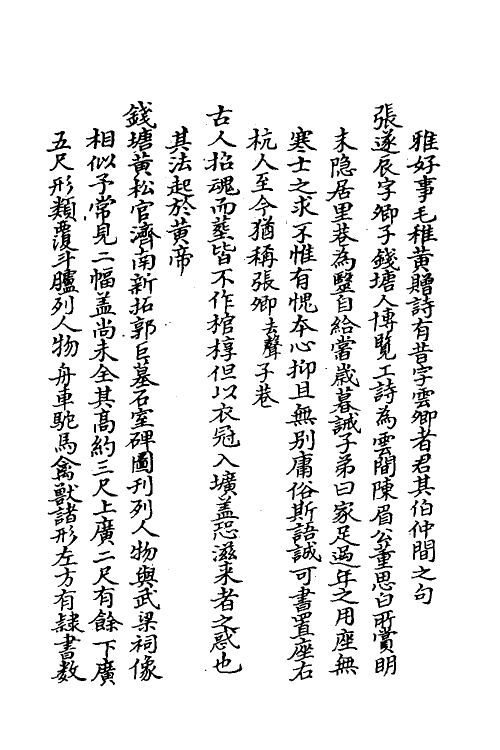 雅好事毛稚黄贈詩有昔字雲卿者君其伯仲間之句
張遂辰字卿子錢塘人博覽工詩為雲間陳眉公董思白所賞明
末隐居里巷為毉自給當歲暮誡子弟曰家足過年之用座無
寒士之求不惟有愧夲心抑且無别庸俗斯語誠可書置座右
杭人至今猶稱張卿去聲子巷
古人招魂而塟皆不作棺椁但以衣冠入壙盖恐滋来者之惑也
其法起於黄帝
錢塘黄松官濟南新拓郭巨墓石室碑圖刋列人物與武梁祠像
相似予常見二幅盖尚未全其髙約三尺上廣二尺有餘下廣
五尺形類覆斗臚列人物舟車駝馬禽獸諸形左方有隸書数